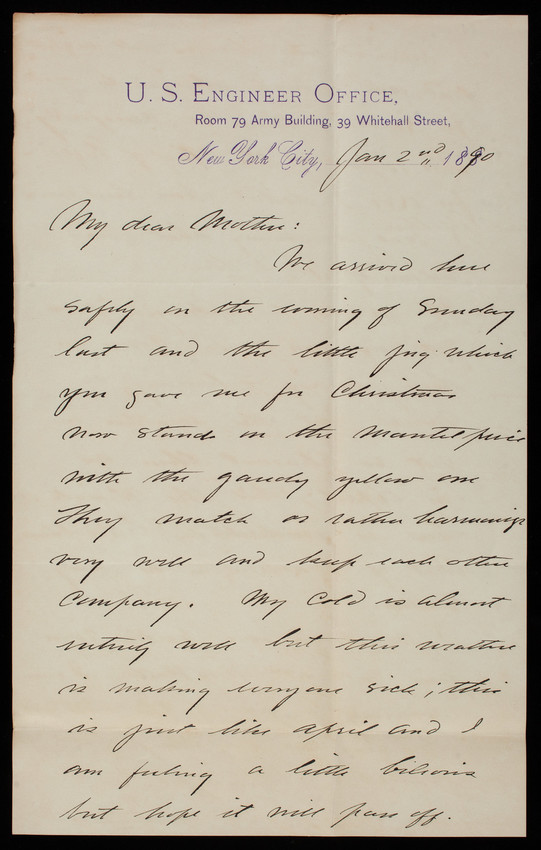 U. S. ENGINEER OFFICE,
Room 79 Army Building, 39 Whitehall Street,
New York City, Jan 2nd 1890
My dear Mother:
We arrived here
safely on the evening of Sunday
last and the little jug which
you gave me for Christmas
now stands on the mantel piece
with the gaudy yellow one
They match or rather harmonize
very well and keep each other
company. My cold is almost
entirely well but this weather
is making everyone sick; this
is just like april and I
am feeling a little bilious
but hope it will pass off.